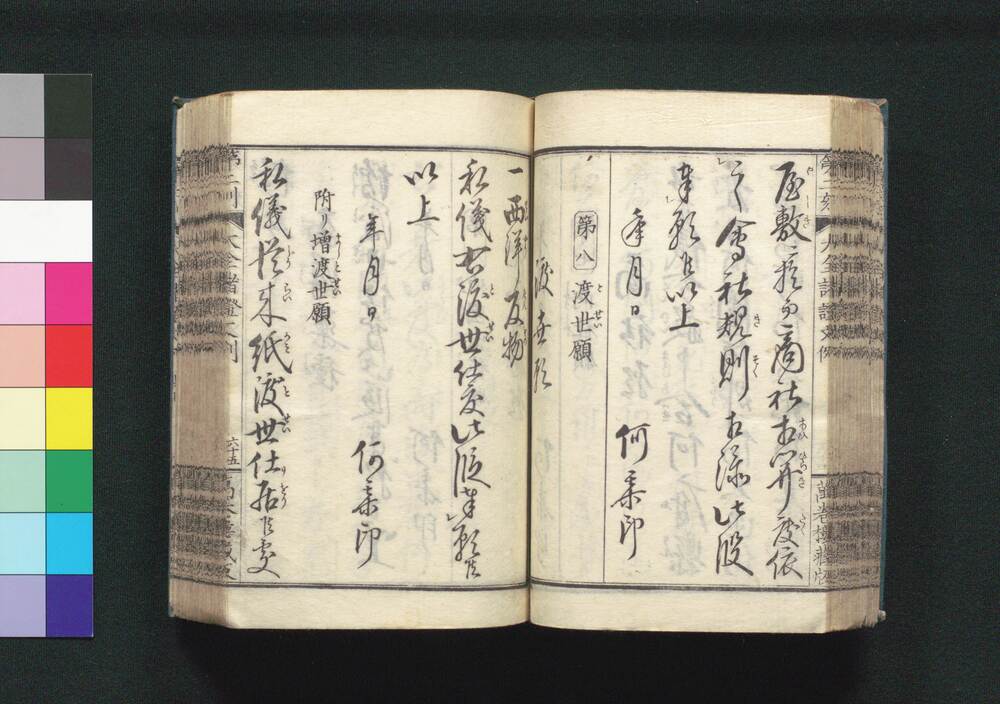 屋敷ニ於而商社相開度依
之会社規則相添此段
奉願候以上
年月日
何某印
第八 渡世願
渡世願
一西洋反物
私儀右渡世仕度此段奉願候
以上
年月日
何某印
附リ増渡世願
私儀従来紙渡世仕居候処
六十五